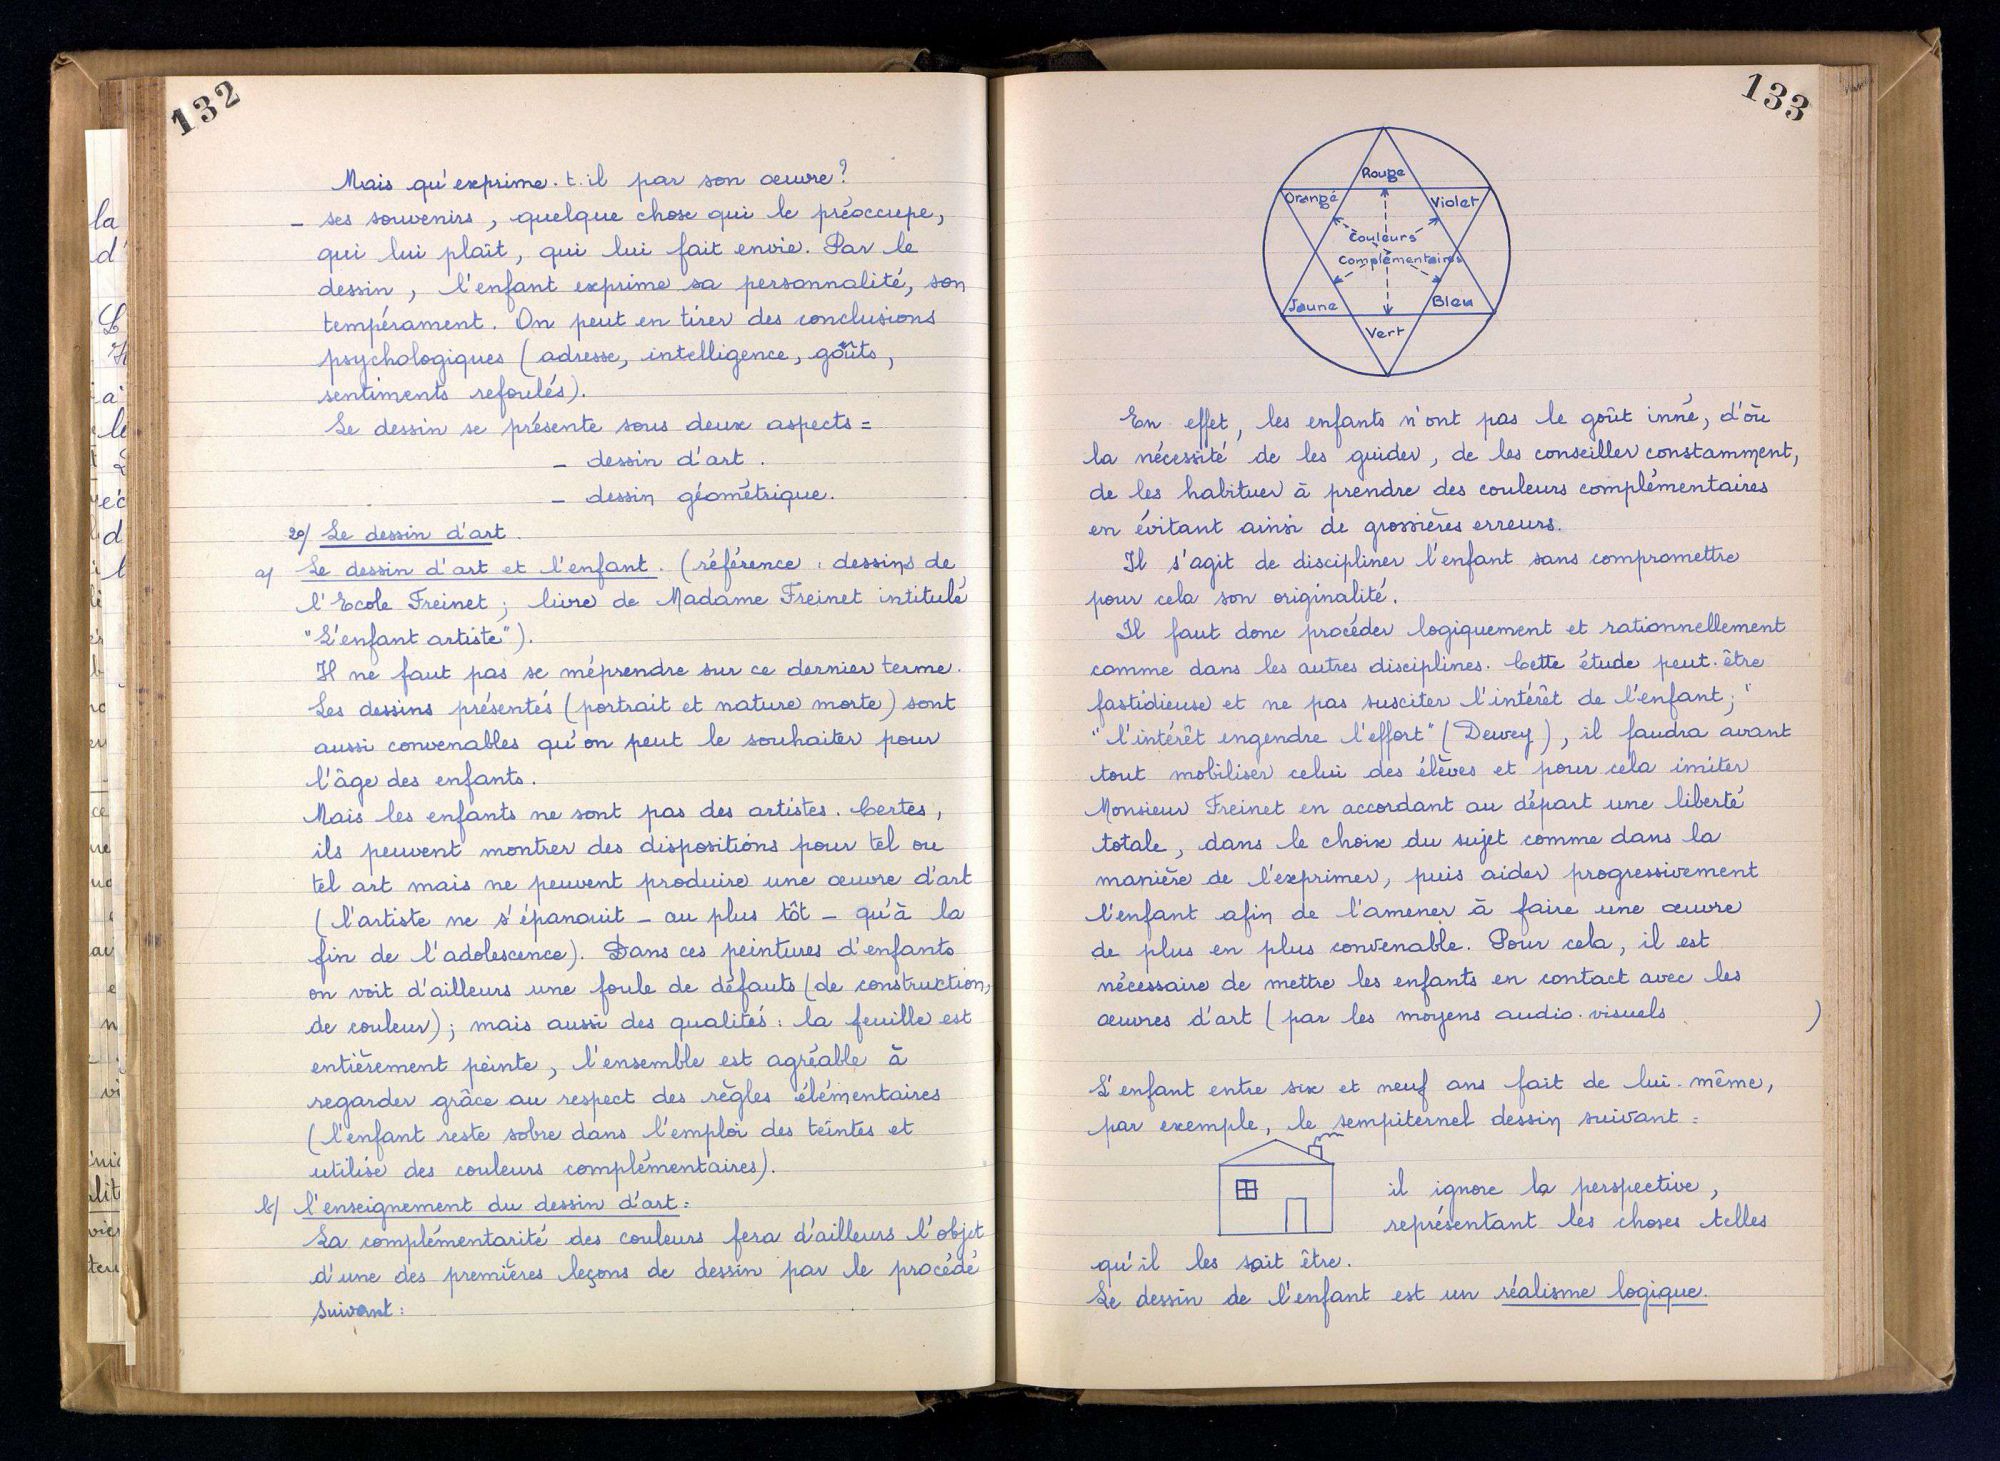 132
Mais qu'exprime-t-il par son œuvre?
- ses souvenirs, quelque chose qui le préoccupe,
qui lui plaît, qui lui fait envie. Par le
dessin, l'enfant exprime sa personnalité, son
tempérament. On peut en tirer des conclusions
psychologiques (adresse, intelligence, goûts,
sentiments refoulés).
Le dessin se présente sous deux aspects =
- dessin d'art.
- dessin géométrique.
2°/ Le dessin d'art.
a/ Le dessin d'art et l'enfant. (référence : dessins de
l'Ecole Freinet ; livre de Madame Freinet intitulé
"L'enfant artiste").
Il ne faut pas se méprendre sur ce dernier terme.
Les dessins présentés (portrait et nature morte) sont
aussi convenables qu'on peut le souhaiter pour
l'âge des enfants.
Mais les enfants ne sont pas des artistes. Certes,
ils peuvent montrer des dispositions pour tel ou
tel art mais ne peuvent produire une œuvre d'art
(l'artiste ne s'épanouit - au plus tôt - qu'à la
fin de l'adolescence). Dans ces peintures d'enfants
on voit d'ailleurs une foule de défauts (de construction,
de couleur) ; mais aussi des qualités : la feuille est
entièrement peinte, l'ensemble est agréable à
regarder grâce au respect des règles élémentaires
(l'enfant reste sobre dans l'emploi des teintes et
utilise des couleurs complémentaires).
b/ l'enseignement du dessin d'art :
La complémentarité des couleurs fera d'ailleurs l'objet
d'une des premières leçons de dessin par le procédé
suivant :
133
Rouge
Orangé
Violet
Couleurs
Complémentaires
Jaune
Bleu
Vert
En effet, les enfants n'ont pas le goût inné, d'où
la nécessité de les guider, de les conseiller constamment,
de les habituer à prendre des couleurs complémentaires
en évitant ainsi de grossières erreurs.
Il s'agit de discipliner l'enfant sans compromettre
pour cela son originalité.
Il faut donc procéder logiquement et rationnellement
comme dans les autres disciplines. Cette étude peut-être
fastidieuse et ne pas susciter l'intérêt de l'enfant ; "
"l'intérêt engendre l'effort" (Dewey), il faudra avant
tout mobiliser celui des élèves et pour cela imiter
Monsieur Freinet en accordant au départ une liberté
totale, dans le choix du sujet comme dans la
manière de l'exprimer, puis aider progressivement
l'enfant afin de l'amener à faire une œuvre
de plus en plus convenable. Pour cela, il est
nécessaire de mettre les enfants en contact avec les
œuvres d'art (par les moyens audio-visuels )
L'enfant entre six et neuf ans fait de lui-même,
par exemple, le sempiternel dessin suivant :
il ignore la perspective,
représentant les choses telles
qu'il les sait être.
Le dessin de l'enfant est un réalisme logique.